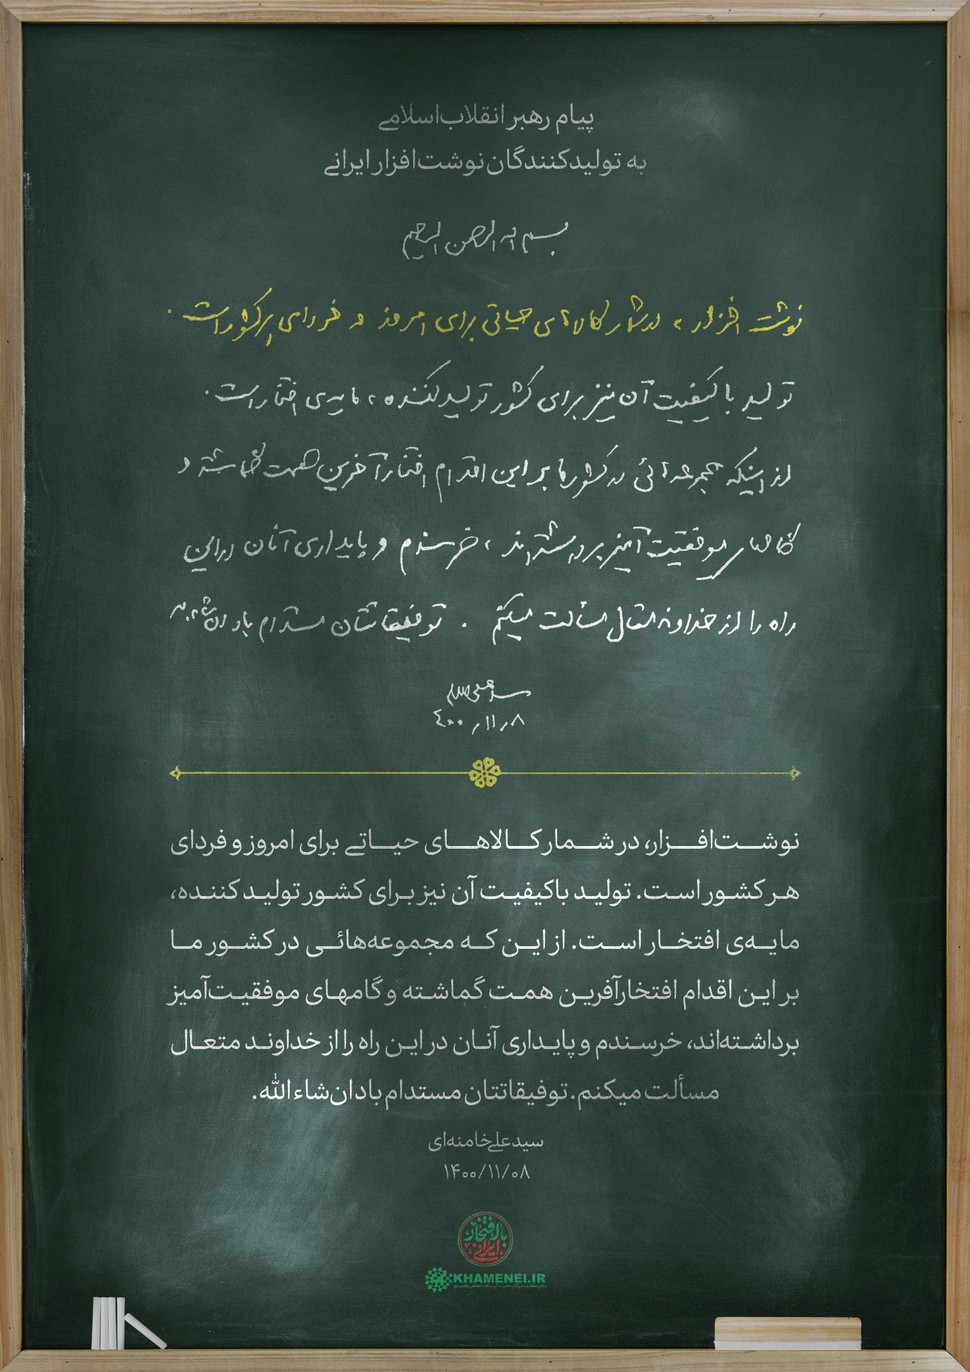 پیام رهبر انقلاب اسلامی
به تولیدکنندگان نوشت‌افزار ایرانی
بسم الله الرحمن الرحیم
نوشت افزار، در شمار کالاهای حیاتی برای امروز و فردای هر کشور است.
تولید با کیفیت آن نیز برای کشور تولید کننده، مایه‌ی افتخار است.
از اینکه مجموعه‌هائی در کشور ما بر این اقدام افتخارآفرین همت گماشته و
گامهای موفقیت آمیز برداشته‌اند، خرسندم و پایداری آنان در این
راه را از خداوند متعال مسألت میکنم. توفیقاتتان مستدام باد ان‌شاءالله
سیدعلی خامنه‌ای
۴۰۰/۱۱/۸
نوشت‌افزار، در شمار کالاهای حیاتی برای امروز و فردای
هر کشور است. تولید باکیفیت آن نیز برای کشور تولید کننده،
مایه‌ی افتخار است. از این که مجموعه‌هائی در کشور ما
بر این اقدام افتخارآفرین همت گماشته و گامهای موفقیت‌آمیز
برداشته‌اند، خرسندم و پایداری آنان در این راه را از خداوند متعال
مسألت میکنم. توفیقاتتان مستدام باد ان‌شاءالله.
سیدعلی خامنه‌ای
۱۴۰۰/۱۱/۰۸
با افتخار
ایرانی
KHAMENEI.IR